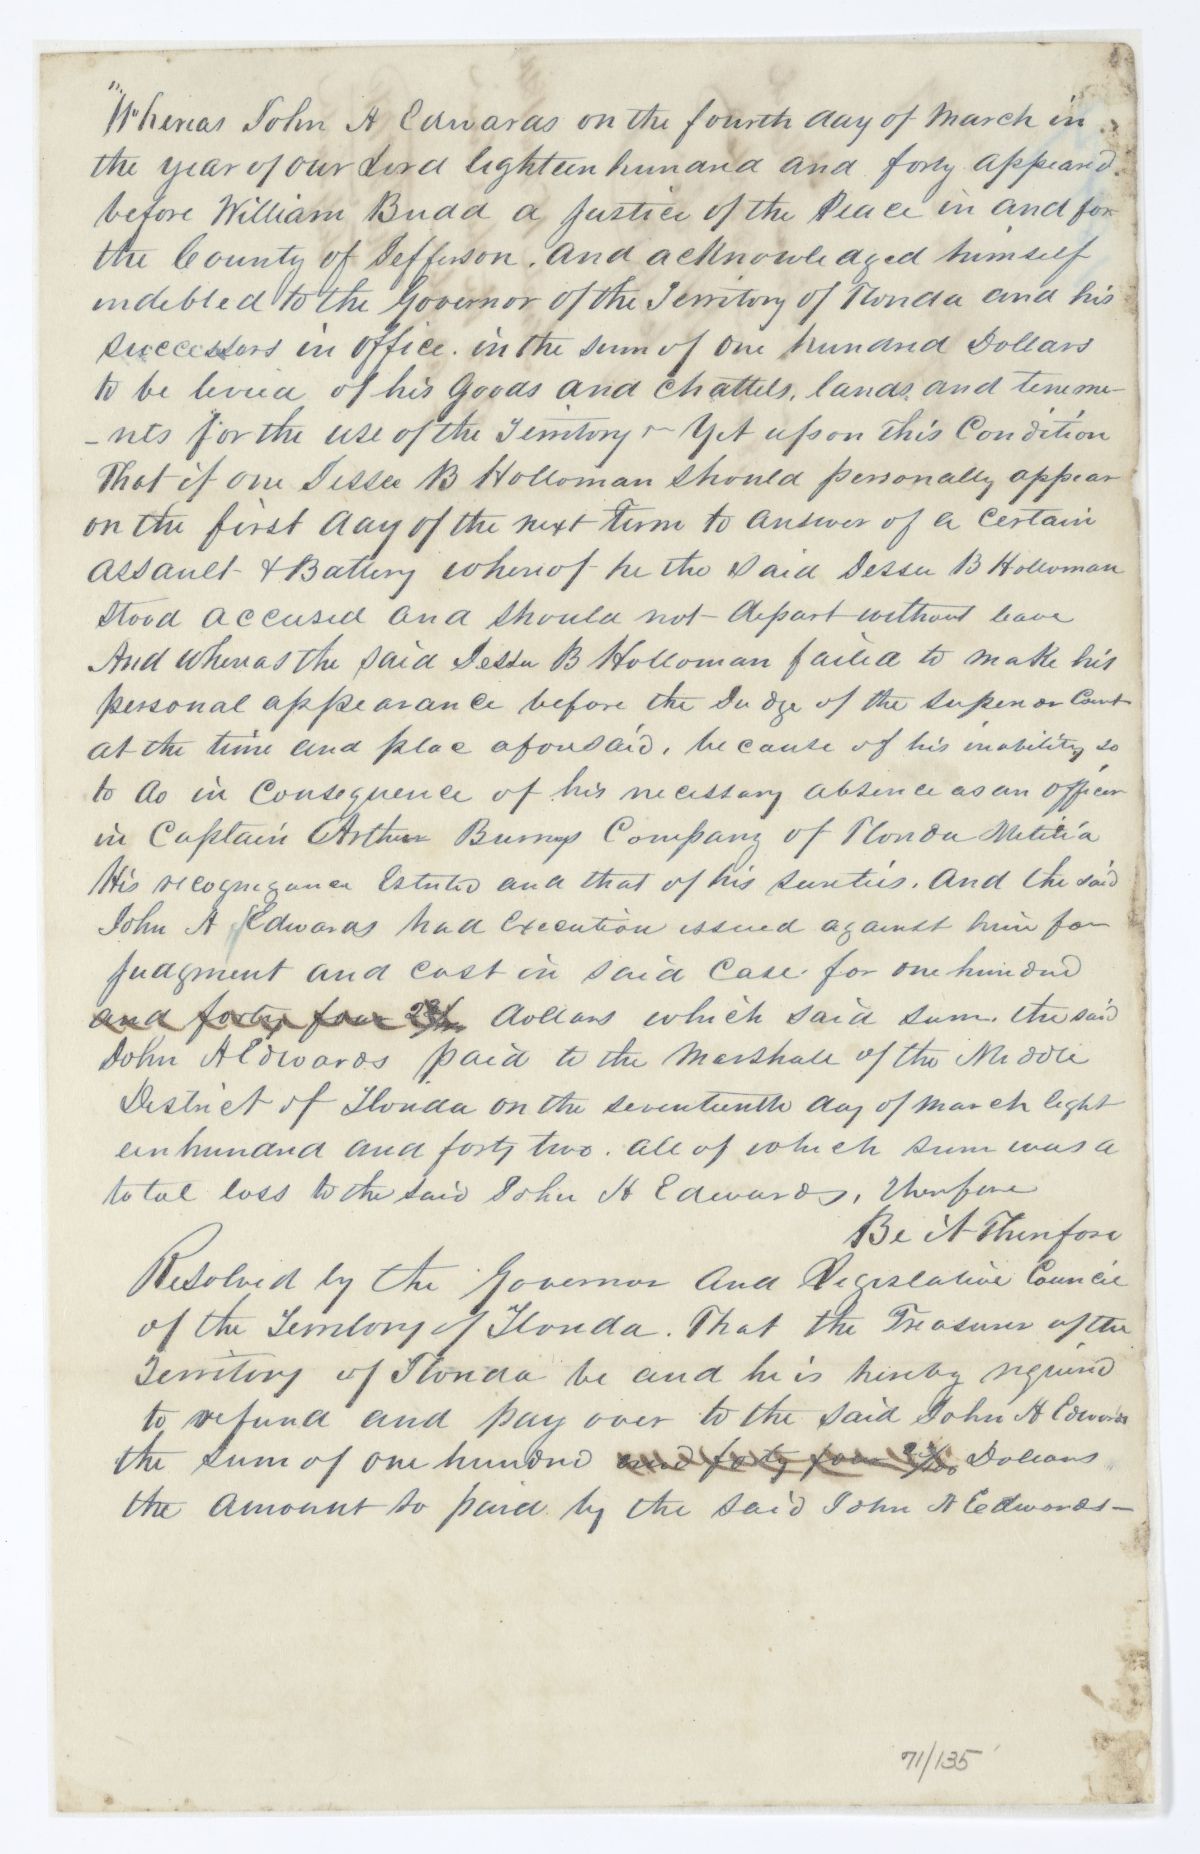 "Whereas John A Edwards on the fourth day of March in
the year of our Lord Eighteen hundred and forty appeared
before William Budd a Justice of the Peace in and for
the County of Jefferson. And acknowledged himself
indebted to the Governor of the Territory of Florida and his
successors in office. in the sum of One hundred Dollars
to be levied of his Goods and Chattels, lands, and teneme-
-nts for the use of the Territory - Yet upon this Condition
That if one Jessee B Holloman should personally appear
on the first day of the next Term to answer of a certain
assault & Battery whereof he the said Jessee B Holloman
stood accused and should not depart without leave
And whereas the said Jessee B Holloman failed to make his
personal appearance before the Judge of the Superior Court
at the time and place aforesaid, because of his inability so
to do in consequence of his necessary absence as an officer
in Captain Arthur Company of Florida Militia
His and that of his sureties. And the said
John A Edwards had Execution issued against him for
judgment and cost in said case for one hundred
and forty four dollars which said sum. the said
John A Edwards paid to the Marshall of the Middle
District of Florida on the seventeenth day of March Eight
een hundred and forty two. all of which sum was a
total loss to the said John A Edwards, Therefore
Be it Therefore
Resolved by the Governor and Legislative Council
of the Territory of Florida. That the Treasurer of the
Territory of Florida be and he is hereby required
to refund and pay over to the said John A Edwards
the sum of one hundred and forty four Dollars
the amount so paid by the said John A Edwards-
71/135